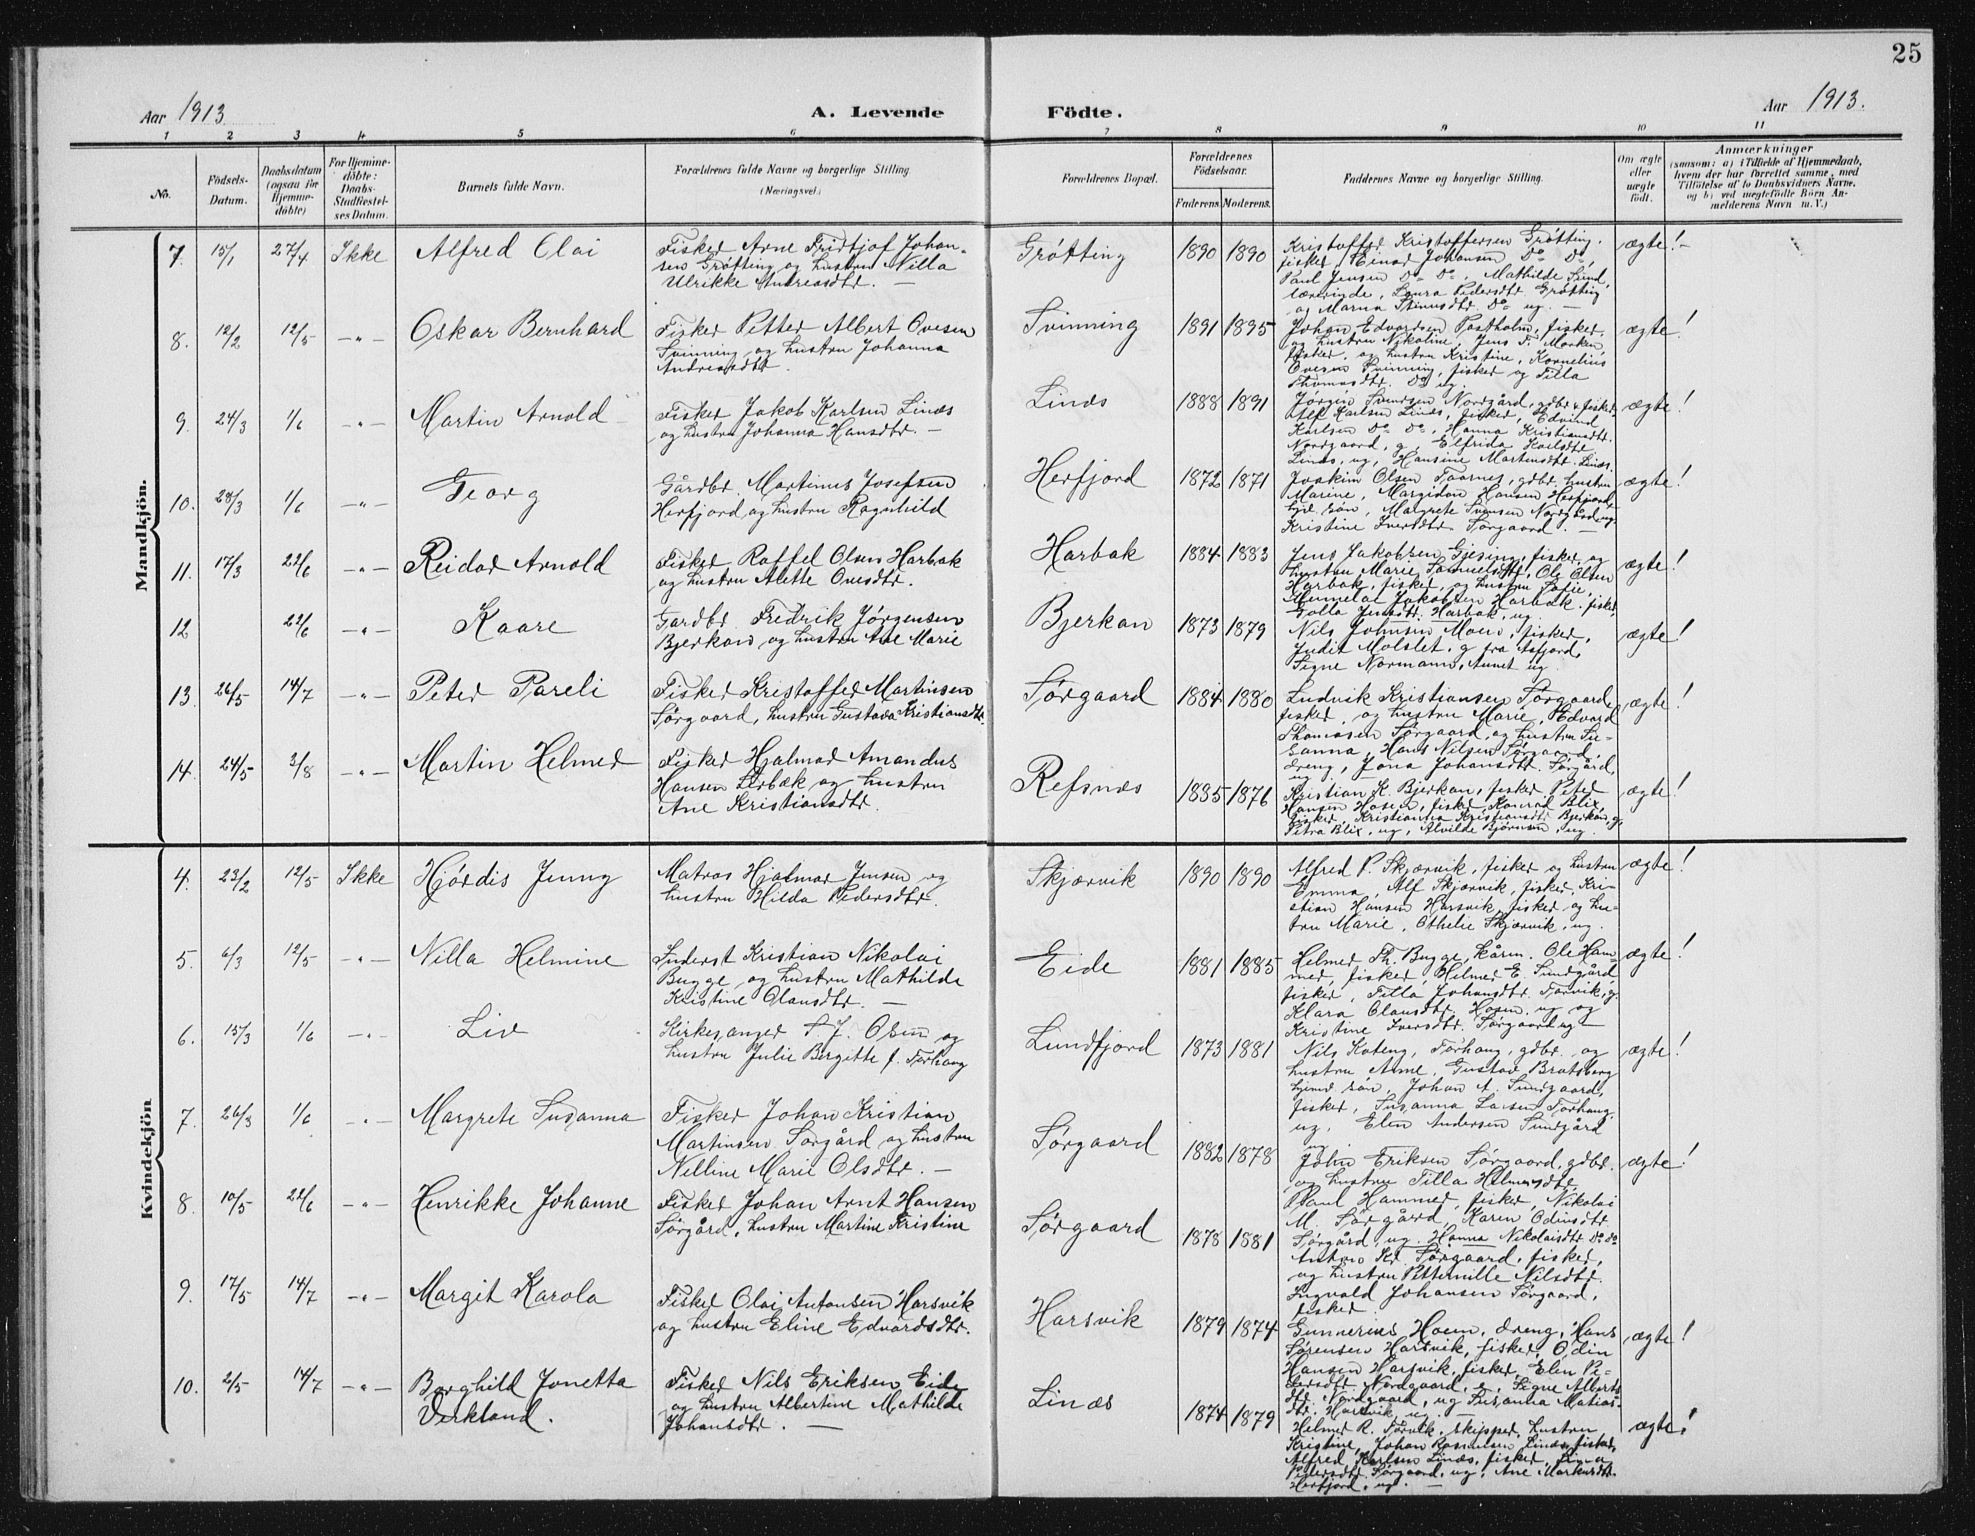 25
Aar 1913
A. Levende Födte.
Aar 1913.
1 2 3 4 5 6 7 8 9 10 11
No.
Födsels-
Datum.
Daabsdatum
(ogsaa for
Hjemme-
döbte)
For Hjemme-
döbte:
Daabs-
Stadfæstel-
ses Datum.
Barnets fulde Navn.
Forældrenes fulde Navne og borgerlige Stilling
(Næringsvei.)
Forældrenes Bopæl.
Forældrenes
Födselsaar.
Faderens. Moderens.
Faddernes Navne og borgerlige Stilling.
Om ægte
eller
uægte
födt.
Anmærkninger
(saasom: a) i Tilfælde af Hjemmedaab,
hvem der har forrettet samme, med
Tilföielse af to Daabsvidners Navne,
og b) ved uægtefödte Börn An-
melderens Navn m. V.)
Mandkjön.
7. 15/1 27/4 Ikke Alfred Olai
Fisker Arne Fridtjof Johan-
sen Grøtting og hustru Nilla
Ulrikke Andreasdtr. —
Grøtting 1890 1890
Kristoffer Kristoffersen Grøtting,
fisker, Einar Johansen Do Do,
Paul Jensen Do Do, Mathilde
lærerinde, Laura Pedersdtr. Grøtting
og Marna Do ug. —
ægte!
8. 12/2 12/5 -"- Oskar Bernhard
Fisker Petter Albert Ovesen
Svinning og hustru Johanna
Andreasdtr.
Svinning 1891 1895
Johan Edvardsen Postholm, fisker,
og hustru Nikoline, Jens F. Morken
fisker, og hustru Kristine, Kornelius
Ovesen Svinning, fisker og Tilla
Thomasdtr. Do ug.
ægte!
9. 24/3 1/6 -"- Martin Arnold
Fisker Jakob Karlsen Linæs
og hustru Johanna Hansdtr. —
Linæs 1888 1891
Jørgen Nordgård, gdbr & fisker
Alf Karlsen Linæs, fisker, Edvind
Karlsen Do Do, Hanna Kristiansdtr.
Nordgaard, g, Elfrida Karlsdtr
Linæs, ug, Hansine Martinsdtr. Linæs.
ægte!
10. 28/3 1/6 -"- Georg
Gårdbr. Martinus Josefsen
Herfjord og hustru Ragnhild
Herfjord 1872 1871
Joakim Olsen Taarnes, gdbr, hustru
Marine, Margidon Hansen Herfjord,
søn, Margrete Svensen Nordgård ug.
Kristine Iversdtr. Sørgaard. —
ægte!
11. 17/3 22/6 -"- Reidar Arnold
Fisker Roffel Olsen Harbak
og hustru Alette Ovesdtr.
Harbak 1884 1883
Jens Jakobsen Gjesing, fisker og
hustru Marie Samuelsdtr, Ole Olsen
Harbak, fisker, og hustru Sofie,
Jakobsen Harbak, fisker,
Golla Jensdtr. Harbak, ug.
ægte!
12 22/6 -"- Kaare
Gardbr. Fredrik Jørgensen
Bjerkan og hustru Ane Marie
Bjerkan 1873 1879
Nils Johnsen Moen, fisker,
Judit Molslet, g fra Aafjord,
Signe Normann, ug.
ægte!
13. 26/5 14/7 -"- Peter Pareli
Fisker Kristoffer Martinsen
Sørgaard, hustru Gustava Kristiansdtr.
Sørgaard 1884 1880
Ludvik Kristiansen Sørgaard,
fisker, og hustru Marie, Edvard
Thomasen Sørgaard, og hustru Su-
sanna, Hans Nilsen Sørgaard,
dreng, Jona Johansdtr. Sørgård,
ug
ægte!
14. 24/5 3/8 -"- Martin Helmer
Fisker Hjalmar Amandus
Hansen og hustru
Ane Kristiansdtr.
Refsnæs 1885 1876
Kristian K. Bjerkan, fisker, Peter
Hansen Hosen, fisker, Konrad Blix,
fisker, Kristianna Kristiansdtr Bjerkan, g,
Petra Blix, ug, Alvilde Bjørnsen, ug.
ægte!
Kvindekjön
4. 23/2 12/5 Ikke Hjørdis Jenny
Matros Hjalmar Jensen og
hustru Hilda Pedersdtr.
Skjærvik 1890 1890
Alfred P. Skjærvik, fisker og hustru
Emma, Alf Skjærvik, fisker, Kri-
stian Hansen Harsvik, fisker og hu-
tru Marie, Othelie Skjærvik, ug.
ægte!
5. 6/3 12/5 -"- Nilla Helmine
Inderst Kristian Nikolai
Bugge, og hustru Mathilde
Kristine Olausdtr. —
Eide 1881 1885
Helmer Th. Bugge, Ole Ham-
mer, fisker, Helmer E. Sundgård,
fisker, Tilla Johansdtr. Torvik, g.
Klara Olausdtr. Hosen, ug. og
Kristine Iversdtr. Sørgaard ug —
ægte!
6. 15/3 1/6 -"- Liv
Kirkesanger S. J. Osen og
hustru Julie Bergitte f. Terhaug
Sundfjord 1873 1881
Nils Koteng, Tørhaug, gdbr. og
hustru Anne, Gustav Bratsberg
søn, Johan A. Sundgaard,
fisker, Susanna Larsen Tørhaug,
ug, Elen Andersen Sundgård
ug
ægte!
7. 26/3 1/6 -"- Margrete Susanna
Fisker Johan Kristian
Martinsen Sørgård og hustru
Nelline Marie Olsdtr. —
Sørgaard 1882 1878
John Eriksen Sørgaard, gdbr.
og hustru Tilla Helmersdtr,
Paul Hammer, fisker, Nikolai
M. Sørgård, Karen Odinsdtr
Sørgård, ug. Hanna Nikolaisdtr. Do Do
ægte!
8. 10/5 22/6 -"- Henrikke Johanne
Fisker Johan Arnt Hansen
Sørgård, hustru Martine Kristine
Sørgaard 1878 1881
Anton Kr Sørgaard, fisker,
og hustru Pettermille Nilsdtr.
Ingvald Johansen Sørgaard,
fisker.
9. 17/5 14/7 -"- Margit Karola
Fisker Olai Antonsen Harsvik
og hustru Eline Edvardsdtr.
Harsvik 1879 1874
Gunnerius Hoem, dreng, Hans
Sørensen Harsvik, fisker, Odin
Hansen Harsvik, fisker, Elen Pe-
dersdtr. Nordgaard, g. Signe Alberts-
dtr. Nordgaard, ug Susanna Matias-
dtr. Harsvik, ug. —
ægte!
10. 2/5 14/7 -"- Borghild Jonetta
Verkland.
Fisker Nils Eriksen Eide
og hustru Albertine Mathilde
Johansdtr. —
Linæs 1874 1879
Helmer R. Tørvik, skipper, hustru
Kristine, Johan Rasmussen Linæs, fisker,
Alfred Karlsen Linæs, fisker,
Pedersdtr. Sørgaard, ug, Ane Markusdtr.
Herfjord, ug. —
ægte!